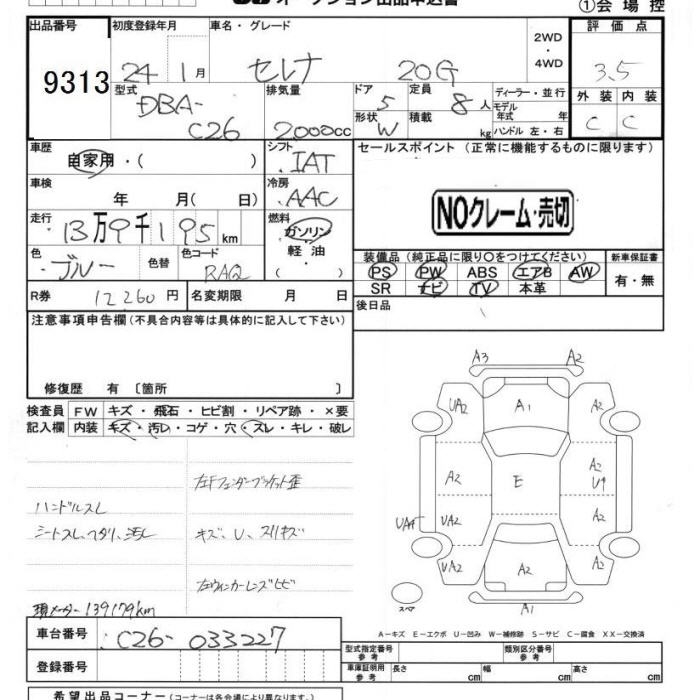 オークション出品申込書
①会場控
出品番号
9313
初度登録年月
24年 1月
車名・グレード
セレナ 20G
2WD
・
4WD
評価点
3.5
外装 内装
C C
型式
DBA-
C26
排気量
2000cc
ドア
5
形状
W
定員
8人
積載
kg
ディーラー・並行
モデル年式 年
ハンドル 左・右
車歴
自家用・( )
シフト
IAT
車検
年 月( 日)
冷房
AAC
走行
13万9千195km
燃料
ガソリン
軽油
( )
色
ブルー
色替
色コード
RAQ
R券 12260円
名変期限 月 日
セールスポイント (正常に機能するものに限ります)
NOクレーム・売切
装備品(純正品に限り○をつけてください)
PS PW ABS エアB AW
SR ナビ TV 本革
新車保証書
有・無
後日品
注意事項申告欄(不具合内容等は具体的に記入して下さい)
修復歴 有 〔箇所 〕
検査員
記入欄
FW キズ・飛石・ヒビ割・リペア跡・×要
内装 キズ・汚レ・コゲ・穴・スレ・キレ・破レ
左Fフェンダーブラケット歪
ハンドルスレ
シートスレ、ヘタリ、汚レ
キズ、U、スリキズ
左ウィンカーレンズヒビ
現メーター139179km
A3 A2
UA2 A1 A2
A2 E A2
U1
UA2
UA2 A2 A2
A1
スペア
A-キズ E-エクボ U-凹み W-補修跡 S-サビ C-腐食 XX-交換済
車台番号 C26-033227
登録番号
型式指定番号
参考
類別区分番号
参考
車庫証明用
参考
長さ cm 幅 cm 高さ cm
希望出品コーナー(コーナーは各会場により異なります)